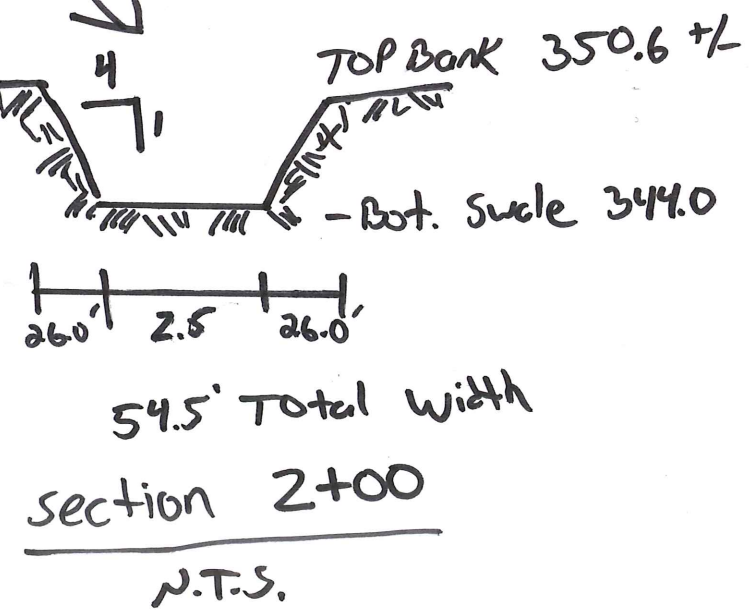 4
1
TOP Bank 350.6 +/-
- Bot. Swale 344.0
26.0' 2.5 26.0'
54.5' Total Width
section 2+00
N.T.S.